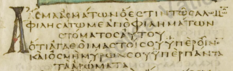 ΑϹΜΑΑϹΜΑΤΩΝΟΕϹΤΙΝΤΩϹΑΛΩ
ΦΙΛΗϹΑΤΩΜΕΑΠΟΦΙΛΗΜΑΤΩΝ
ϹΤΟΜΑΤΟϹΑΥΤΟΥ
ΟΤΙΑΓΑΘΟΙΜΑϹΤΟΙϹΟΥΥΠΕΡΟΙΝΟ
ΚΑΙΟϹΜΗΜΥΡΩΝϹΟΥΥΠΕΡΠΑΝΤΑ
ΤΑΑΡΩΜΑΤΑ